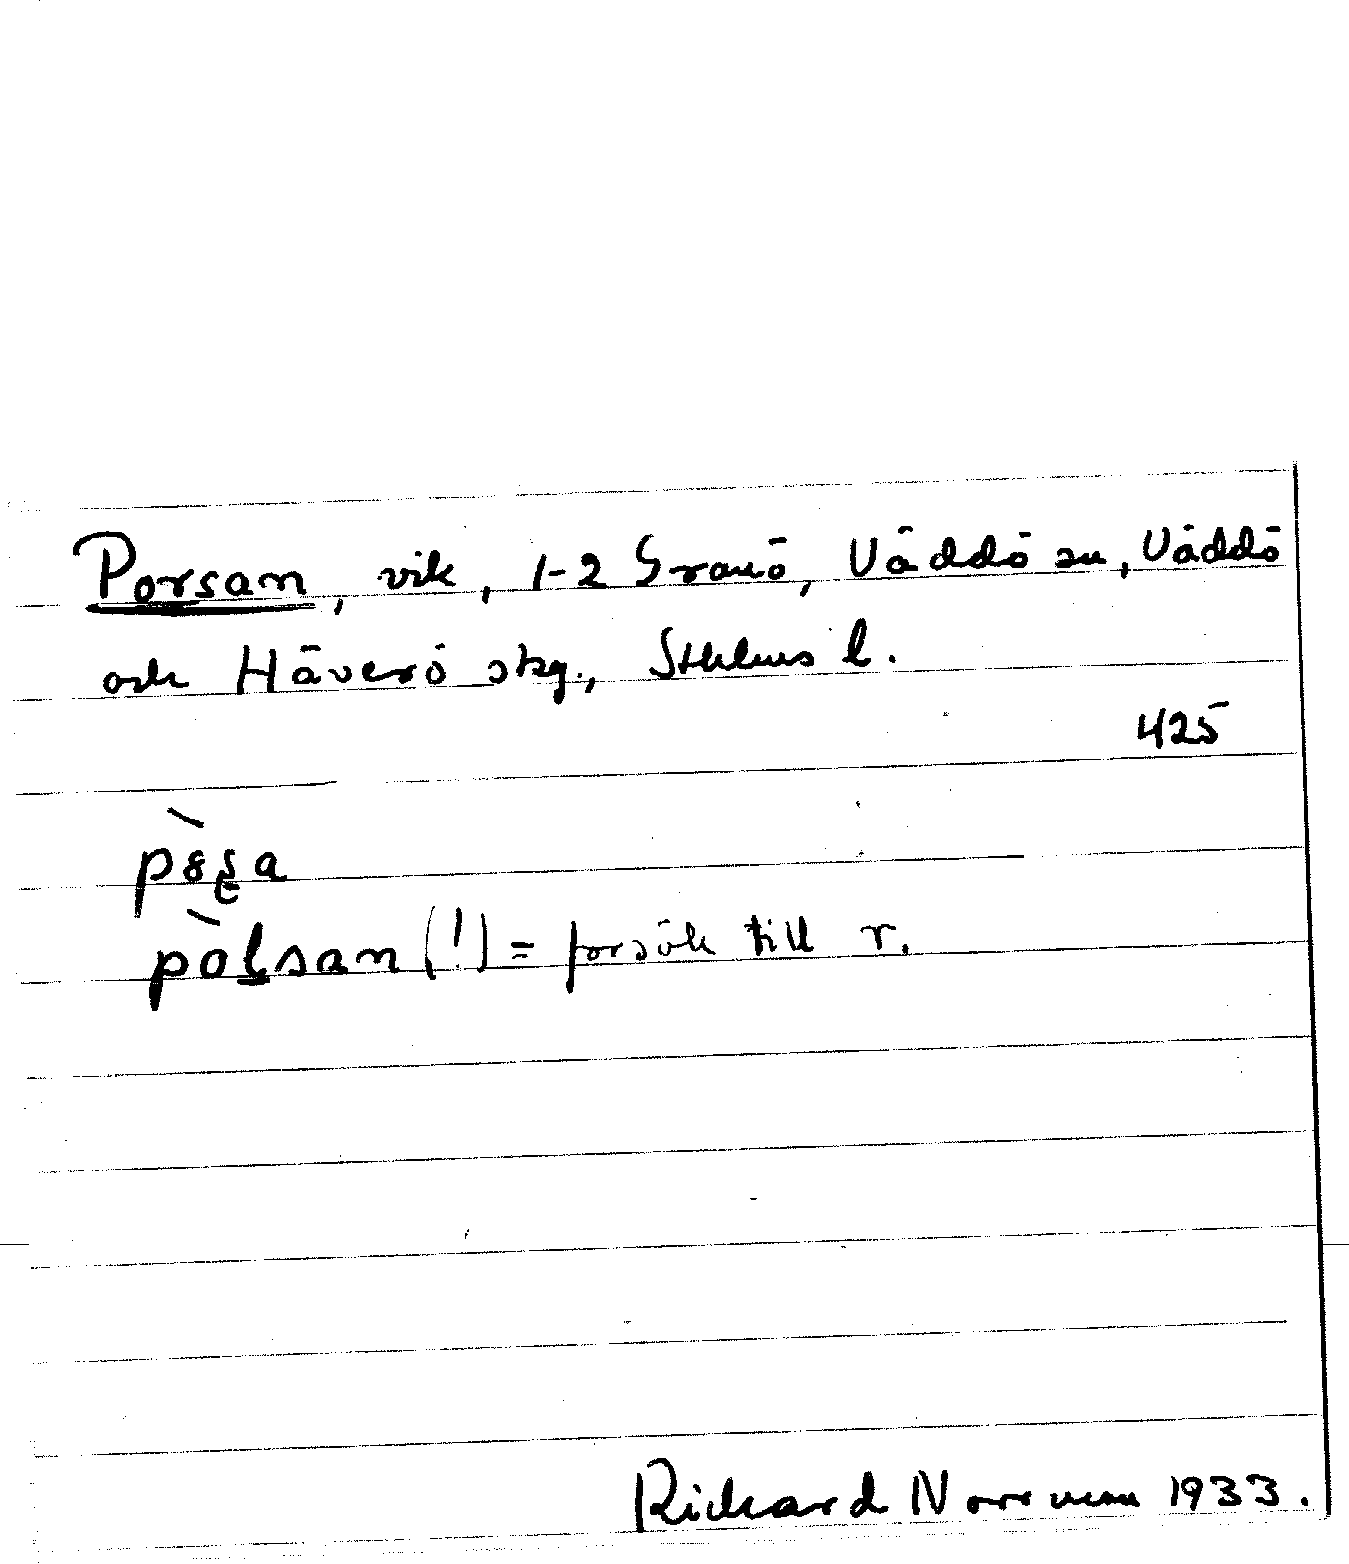 Porsan, vik, 1-2 Granö, Väddö sn, Väddö
och Häverö skg., Sthlms l.
425
pòlsan (!) = försök till r.
Richard Norrman 1933.